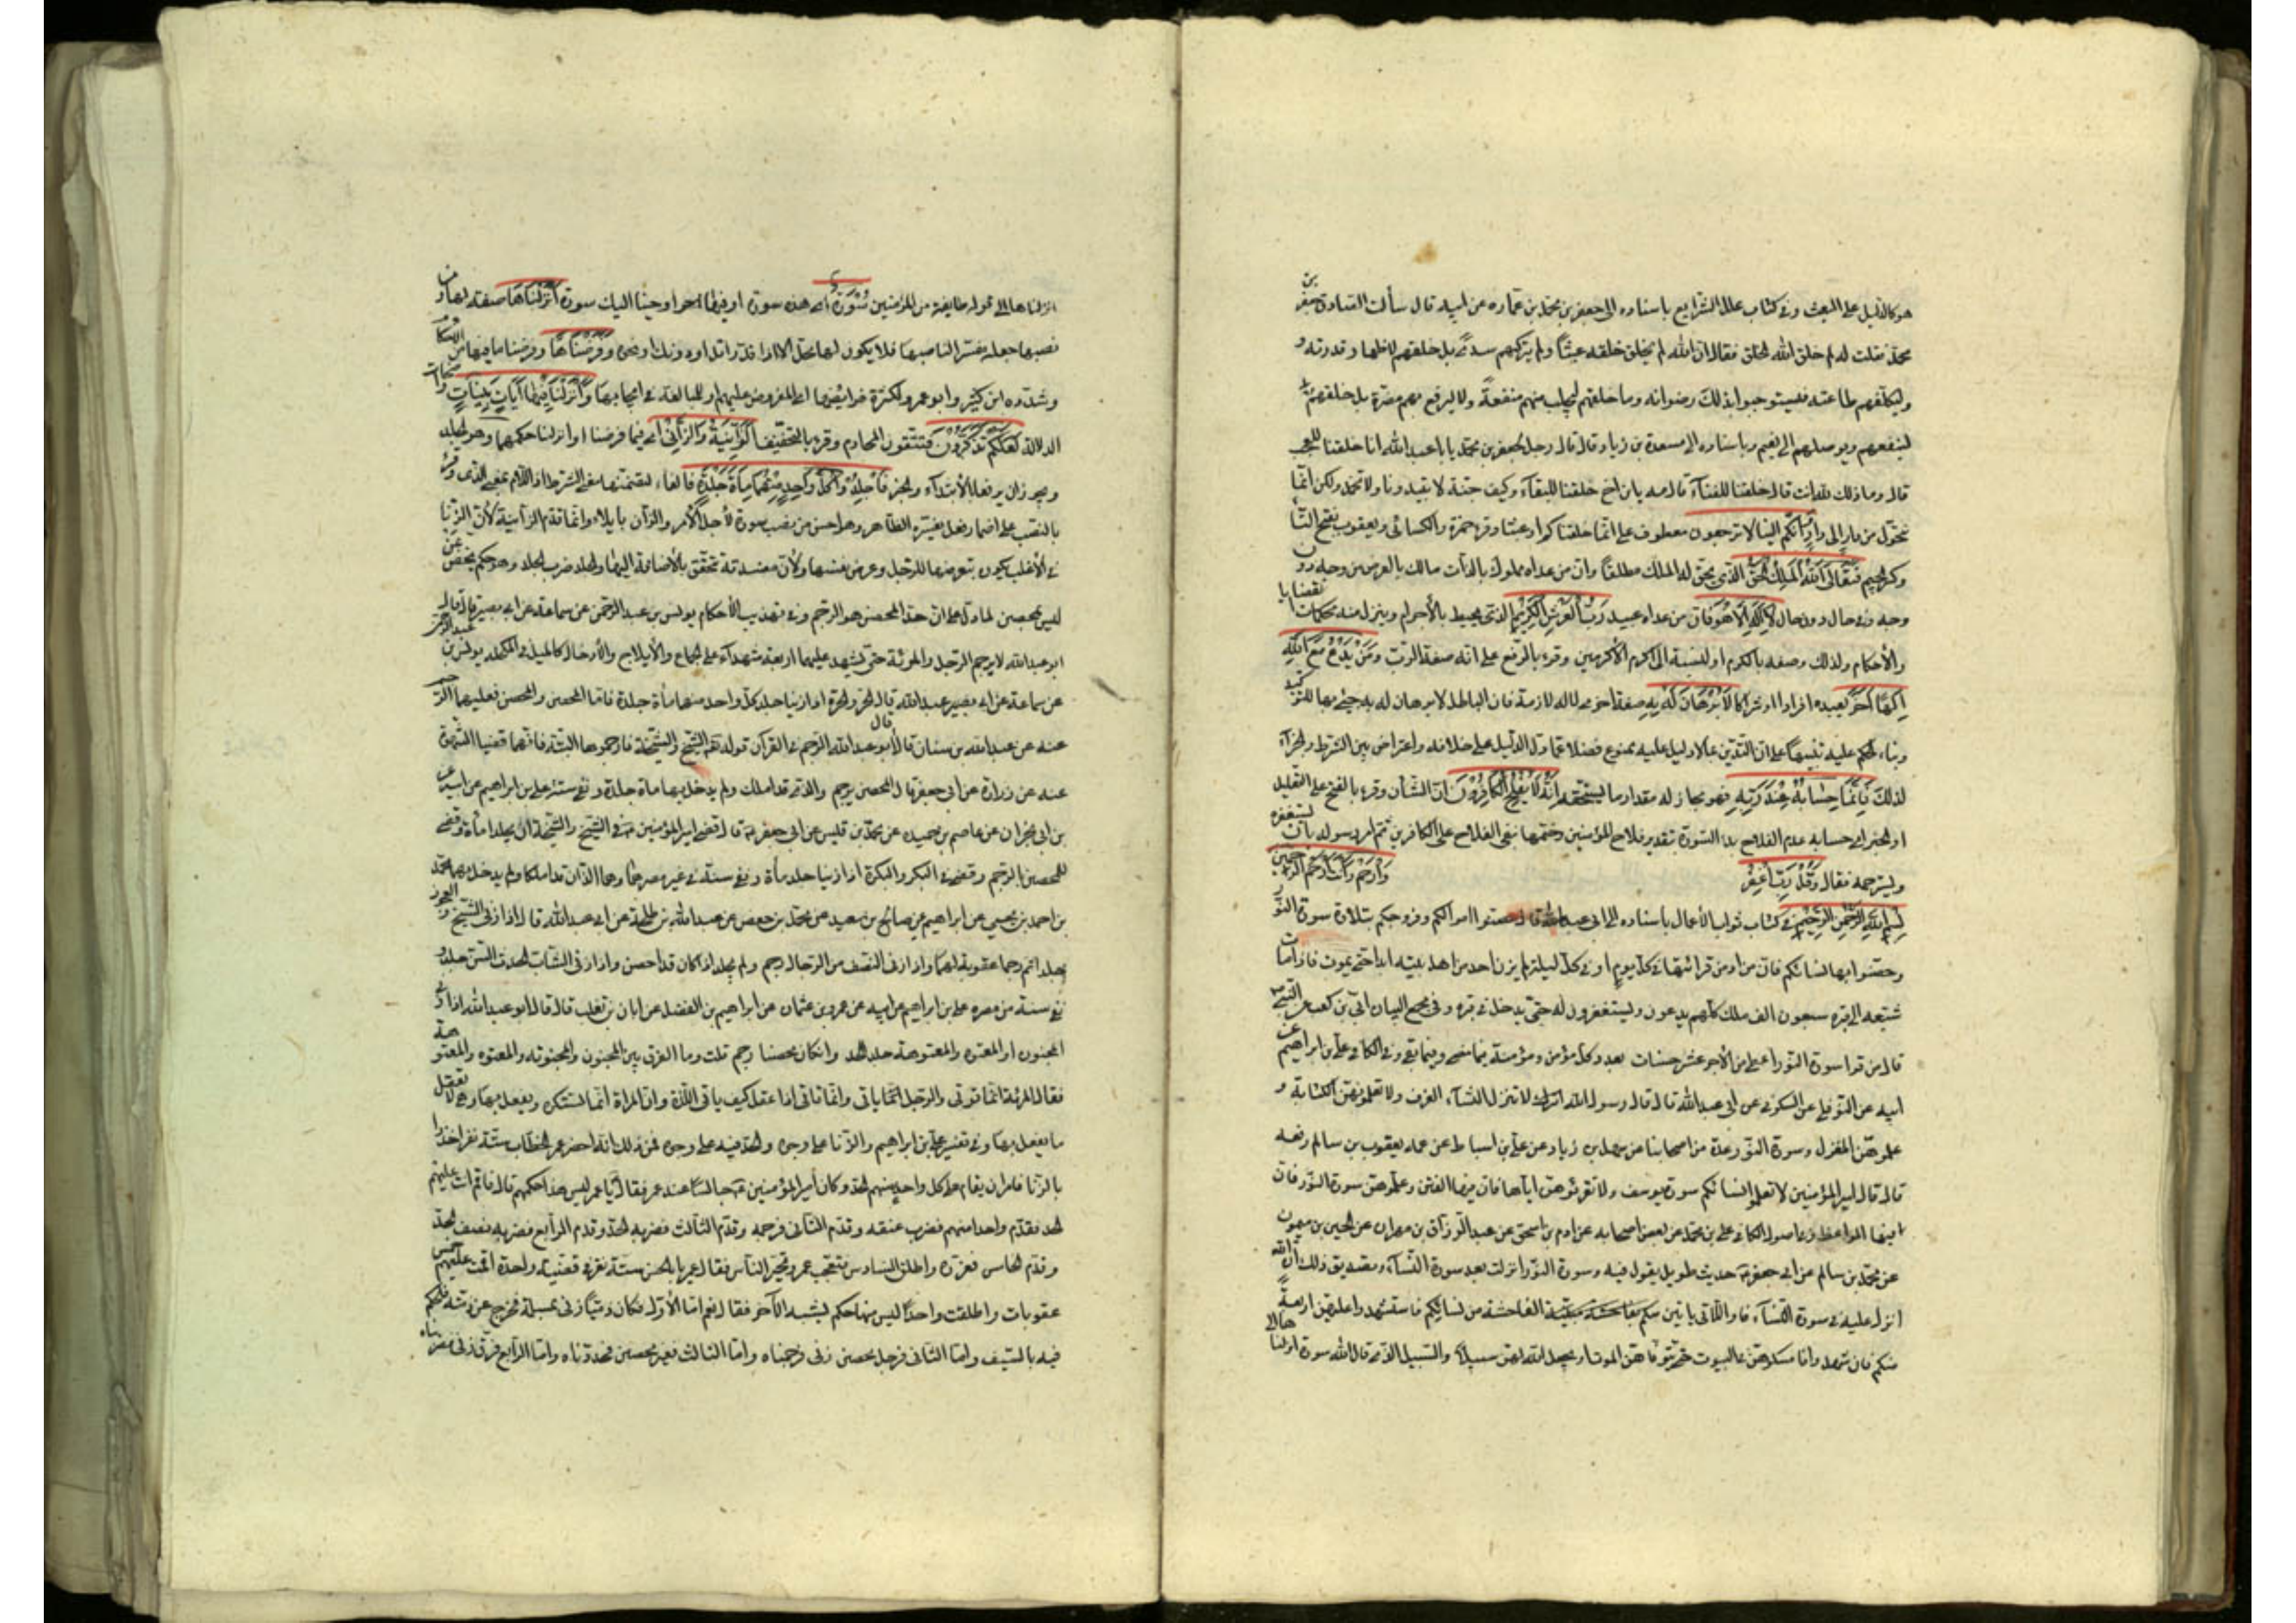 هو كالدليل على البعث وفي كتاب علل الشرايع باسناده الى جعفر بن محمد بن عماره عن ابيه قال سألت الصادق جعفر بن
محمد فقلت له لم خلق الله الخلق فقال ان الله لم يخلق خلقه عبثاً ولم يتركهم سدىً بل خلقهم لاظهار قدرته و
وليكلفهم طاعته فيستوجبوا بذلك رضوانه وما خلقهم ليجلب منهم منفعةً ولا ليدفع بهم مضرة بل خلقهم
لينفعهم ويوصلهم الى نعيم وباسناده الى مسعدة بن زياد قال قال رجل لجعفر بن محمد يا با عبد الله انا خلقنا للعجب
قال وما ذلك لله انت قال خلقنا للفناء قال مه يابن اخ خلقنا للبقاء وكيف جنة لا تبيد ونار لا تخمد ولكن انما
نتحول من دار الى دار وَأَنَّكُم الينا لا ترجعون معطوف على انما خلقناكم او عبثا وقرء حمزة والكسائى ويعقوب بفتح التا
وكسر الجيم فَتَعَالَى اللهُ الْمَلِكُ الْحَقُّ الذى يحق له الملك مطلقاً وان من عداه مملوك بالذات مالك بالعرض من وجه دون
وجه وفي حال دون حال لَا إِلَهَ إِلَّا هُوَ فان من عداه عبيد رَبُّ الْعَرْشِ الْكَرِيمِ الذى يحيط بالأجرام وينزل منه محكمات
والأحكام ولذلك وصفه بالكرم او لنسبته الى اكرم الأكرمين وقرء بالرفع على انه صفة الرب وَمَنْ يَدْعُ مَعَ اللهِ
إِلَهًا آخَرَ يعبده افرادا او اشراكا لَا بُرْهَانَ لَهُ بِهِ صفة اخرى لاله لازمة فان الباطل لا برهان له به جيء بها للتاكيد
وبناء الحكم عليه تنبيهاً على ان التدين بما لا دليل عليه ممنوع فضلا عما دل الدليل على خلافه واعتراض بين الشرط والجزاء
لذلك فَإِنَّمَا حِسَابُهُ عِنْدَ رَبِّهِ فهو مجاز له مقدار ما يستحقه إِنَّهُ لَا يُفْلِحُ الْكَافِرُونَ ان الشأن وقرء بالفتح على التعليل
او الخبر اى حسابه عدم الفلاح بدا السورة بتقدير فلاح المؤمنين وختمها بنفي الفلاح على الكافرين ثم امر رسوله بان يستغفره
ويسترحمه فقال وَقُلْ رَبِّ اغْفِرْ وَارْحَمْ وَأَنْتَ أَرْحَمُ الرَّاحِمِينَ
بِسْمِ اللهِ الرَّحْمَنِ الرَّحِيمِ في كتاب ثواب الأعمال باسناده الى ابى عبد الله قال حصنوا اموالكم وفروجكم بتلاوة سورة النور
وحصنوا بها نسائكم فان من ادمن قرائتها في كل يوم او في كل ليلة لم يزن احد من اهل بيته ابدا حتى يموت فاذا مات
شيعه الى قبره سبعون الف ملك كلهم يدعون ويستغفرون له حتى يدخل في قبره وفي مجمع البيان ابى بن كعب عن النبي
قال من قرا سورة النور اعطى من الأجر عشر حسنات بعدد كل مؤمن ومؤمنة فيما مضى وفيما بقى وفي الكافى على بن ابراهيم عن
ابيه عن النوفلى عن السكونى عن ابى عبد الله قال قال رسول الله لا تنزلوا النساء الغرف ولا تعلموهن الكتابة و
علموهن المغزل وسورة النور عدة من اصحابنا عن سهل بن زياد عن على بن اسباط عن عمه يعقوب بن سالم رفعه
قال قال امير المؤمنين لا تعلموا نسائكم سورة يوسف ولا تقرئوهن اياها فان فيها الفتن وعلموهن سورة النور فان
فيها المواعظ وفي اصول الكافى على بن محمد عن بعض اصحابه عن ادم بن اسحق عن عبد الرزاق بن مهران عن الحسين بن ميمون
عن محمد بن سالم عن ابى جعفر حديث طويل يقول فيه وسورة النور انزلت بعد سورة النساء وتصديق ذلك ان الله
انزل عليه في سورة النساء واللاتى ياتين الفاحشة من نسائكم فاستشهدوا عليهن اربعةً
منكم فان شهدوا فامسكوهن في البيوت حتى يتوفاهن الموت او يجعل الله لهن سبيلاً والسبيل الذى قال الله سورة انزلنا
انزلناها الى قوله طايفة من المؤمنين سُورَةٌ اى هذه سورة او فيما اوحينا اليك سورة أَنْزَلْنَاهَا صفته لها ومن
نصبها جعله مفسرا لناصبها فلا يكون لها محل الا اذا قدر اتل او دونك او نحوه وَفَرَضْنَاهَا وفرضنا ما فيها من الاحكام
وشدده ابن كثير وابو عمرو لكثرة فرايضها او المفروض عليهم او للمبالغة في ايجابها وَأَنْزَلْنَا فِيهَا آيَاتٍ بَيِّنَاتٍ واضحات
الدلالة لَعَلَّكُمْ تَذَكَّرُونَ فتتقون المحارم وقرء بالتخفيف الزَّانِيَةُ وَالزَّانِي اى فيما فرضنا او انزلنا حكمهما وهو الجلد
ويجوز ان يرفعا بالأبتداء والخبر فَاجْلِدُوا كُلَّ وَاحِدٍ مِنْهُمَا مِأَةَ جَلْدَةٍ والفاء لتضمنهما معنى الشرط اذ اللام بمعنى الذى وقرء
بالنصب على اضمار فعل يفسره الظاهر وهو احسن من نصب سورة لأجل الأمر والزان بلا ياء وانما قدم الزانية لأن الزنا
في الأغلب يكون بتعرضها للرجل وعرض نفسها ولأن مفسدته تتحقق بالأضافة اليها والجلد ضرب الجلد وهو حكم يخص بمن
ليس بمحصن لما دل على ان حد المحصن هو الرجم وفي تهذيب الأحكام يونس بن عبد الرحمن عن سماعة عن ابى بصير قال قال
ابو عبد الله لا يرجم الرجل والمرئة حتى يشهد عليهما اربعة شهداء على الجماع والأيلاج والأدخال كالميل في المكحلة يونس بن عبد الرحمن
عن سماعة عن ابى بصير عن ابى عبد الله قال الحر والحرة اذا زنيا جلد كل واحد منهما مأة جلدة فاما المحصن والمحصنة فعليهما الرجم
عنه عن عبد الله بن سنان قال قال ابو عبد الله الرجم في القرآن قوله تعالى الشيخ والشيخة فارجموهما البتة فانهما قضيا الشهوة
عنه عن زرارة عن ابى جعفر قال المحصن يرجم والذى قد املك ولم يدخل بها مأة جلدة ونفى سنة على بن ابراهيم عن ابيه عن
بن ابى نجران عن عاصم بن حميد عن محمد بن قيس عن ابى جعفر قال قضى امير المؤمنين في الشيخ والشيخة ان يجلدا مأة وقضى
للمحصن الرجم وقضى في البكر والبكرة اذا زنيا جلد مأة ونفى سنة في غير مصرهما وهما اللذان قد املكا ولم يدخل بها محمد
بن احمد بن يحيى عن ابراهيم عن صالح بن سعيد عن محمد بن حفص عن عبد الله بن طلحة عن ابى عبد الله قال اذا زنى الشيخ والعجوز
جلدا ثم رجما عقوبة لهما واذا زنى النصف من الرجال رجم ولم يجلد اذا كان قد احصن واذا زنى الشاب الحدث السن جلد و
نفى سنة من مصره على بن ابراهيم عن ابيه عن عمرو بن عثمان عن ابراهيم بن الفضل عن ابان بن تغلب قال قال ابو عبد الله اذا زنى
المجنون او المعتوه والمعتوهة جلد الحد وان كان محصنا رجم قلت وما الفرق بين المجنون والمجنونه والمعتوه والمعتوهة
فقال المرئة انما تؤتى والرجل انما ياتى وانما ياتى اذا عقل كيف ياتى اللذة وان المراة انما تستكره ويفعل بها وهى لا تعقل
ما يفعل بها وفي تفسير على بن ابراهيم والزنا على وجوه والحد فيه على وجوه فمن ذلك انه احضر عمر الخطاب ستة نفر اخذوا
بالزنا فامر ان يقام على كل واحد منهم الحد وكان امير المؤمنين جالسا عند عمر فقال يا عمر ليس هذا حكمهم قال فاقم انت عليهم
الحد فقدم واحدا منهم فضرب عنقه وقدم الثانى فرجمه وقدم الثالث فضربه الحد وقدم الرابع فضربه نصف الحد
وقدم الخامس فعزره واطلق السادس فتعجب عمر وتحير الناس فقال عمر يا با الحسن ستة نفر في قضية واحدة اقمت عليهم خمس
عقوبات واطلقت واحدا ليس منها حكم يشبه الآخر فقال نعم اما الأول فكان ذميا زنى بمسلمة فخرج عن ذمته فالحكم
فيه بالسيف واما الثانى فرجل محصن زنى فرجمناه واما الثالث فغير محصن فحددناه واما الرابع فرق زنى فضربناه